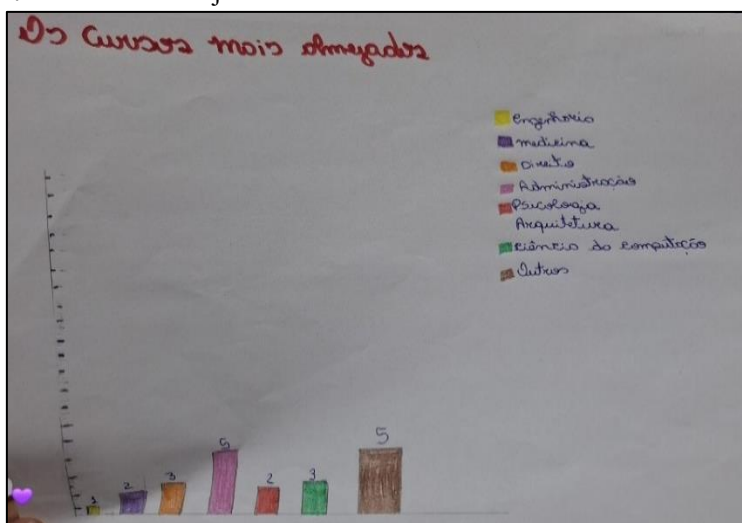 Os Cursos mais almejados
engenharia
medicina
Direito
Administração
Psicologia
Arquitetura
ciência da computação
Outros
1
2
3
5
2
3
5